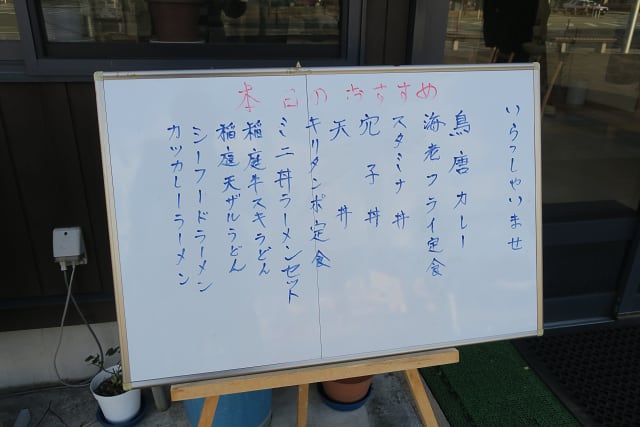 本日のおすすめ
いらっしゃいませ
鳥唐カレー
海老フライ定食
スタミナ丼
穴子丼
天丼
キリタンポ定食
ミニ丼ラーメンセット
稲庭牛スキうどん
稲庭天ザルうどん
シーフードラーメン
カツカレーラーメン